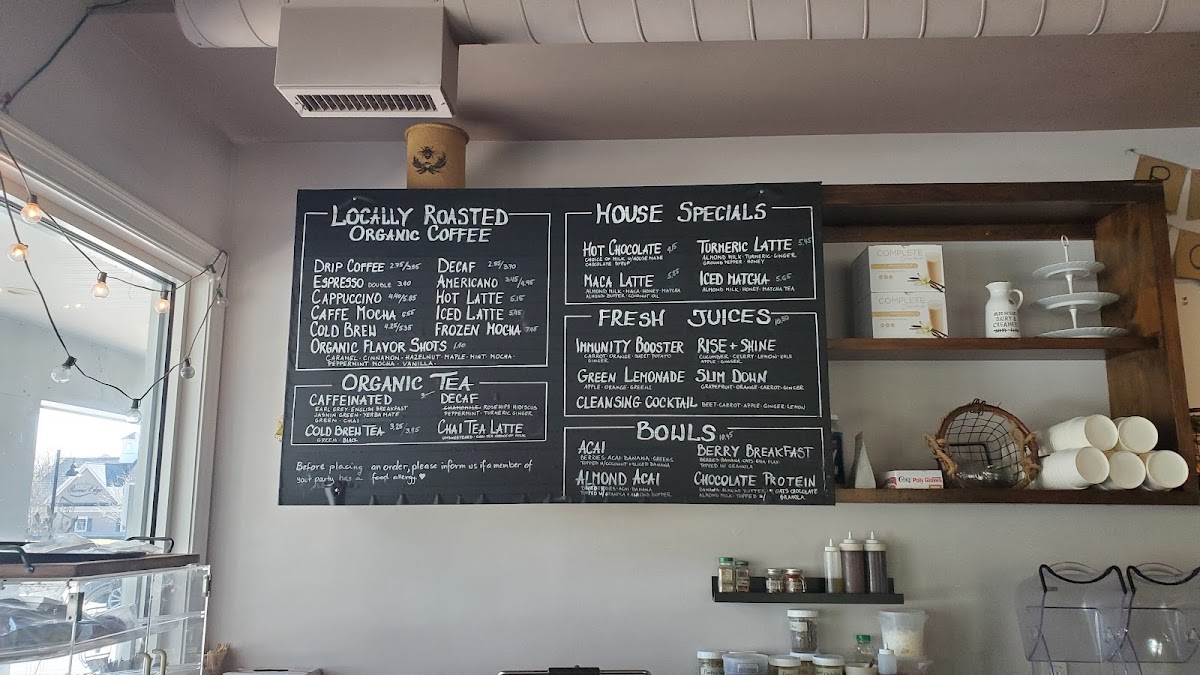 LOCALLY ROASTED
ORGANIC COFFEE
DRIP COFFEE 2.75/3.25
DECAF
ESPRESSO DOUBLE 3.10
AMERICANO 3.45/4.45
CAPPUCCINO
HOT LATTE 5.15
CAFFE MOCHA
ICED LATTE 5.45
COLD BREW 4.25/5.35
FROZEN MOCHA
ORGANIC FLAVOR SHOTS
CARAMEL · CINNAMON · HAZELNUT · MAPLE · MINT · MOCHA ·
PEPPERMINT MOCHA · VANILLA
ORGANIC TEA
CAFFEINATED
EARL GREY · ENGLISH BREAKFAST
JASMIN GREEN · YERBA MATE
GREEN · CHAI
DECAF
CHAMOMILE · ROSEHIPS HIBISCUS
PEPPERMINT · TURMERIC GINGER
COLD BREW TEA 3.25/3.95
GREEN · BLACK
CHAI TEA LATTE
UNSWEETENED · CHAI TEA
Before placing an order, please inform us if a member of
your party has a food allergy. ♥
HOUSE SPECIALS
HOT CHOCOLATE
CHOICE OF MILK W/HOUSE MADE
CHOCOLATE SYRUP
TURMERIC LATTE 5.45
ALMOND MILK · TURMERIC · GINGER
GROUND PEPPER · HONEY
MACA LATTE
ALMOND MILK · MACA · HONEY · MATCHA
ALMOND BUTTER · COCONUT OIL
ICED MATCHA
ALMOND MILK · HONEY · MATCHA TEA
FRESH JUICES
IMMUNITY BOOSTER
CARROT · ORANGE · SWEET POTATO
GINGER
RISE + SHINE
CUCUMBER · CELERY · LEMON · KALE
APPLE · GINGER
GREEN LEMONADE
APPLE · ORANGE · GREENS
SLIM DOWN
GRAPEFRUIT · ORANGE · CARROT · GINGER
CLEANSING COCKTAIL BEET · CARROT · APPLE · GINGER · LEMON
BOWLS
ACAI
BERRIES · ACAI · BANANA · GREENS
TOPPED W/COCONUT + SLICED BANANA
BERRY BREAKFAST
BERRIES · BANANA · OATS
TOPPED W/ GRANOLA
ALMOND ACAI
TOPPED W/GRANOLA + ALMOND BUTTER
CHOCOLATE PROTEIN
BANANA · ALMOND BUTTER · OATS · CHOCOLATE
ALMOND MILK · TOPPED W/ GRANOLA
COMPLETE
COMPLETE
DAIRY &
CREAMERY
Poly Gloves